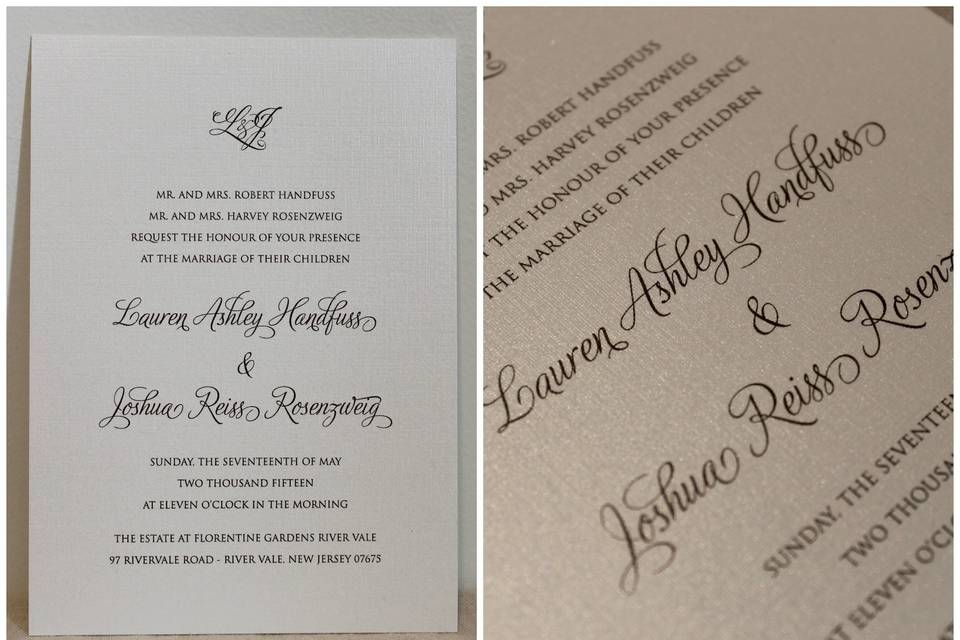 L&J
MR. AND MRS. ROBERT HANDFUSS
MR. AND MRS. HARVEY ROSENZWEIG
REQUEST THE HONOUR OF YOUR PRESENCE
AT THE MARRIAGE OF THEIR CHILDREN
Lauren Ashley Handfuss
&
Joshua Reiss Rosenzweig
SUNDAY, THE SEVENTEENTH OF MAY
TWO THOUSAND FIFTEEN
AT ELEVEN O'CLOCK IN THE MORNING
THE ESTATE AT FLORENTINE GARDENS RIVER VALE
97 RIVERVALE ROAD - RIVER VALE, NEW JERSEY 07675
MRS. ROBERT HANDFUSS
MRS. HARVEY ROSENZWEIG
THE HONOUR OF YOUR PRESENCE
THE MARRIAGE OF THEIR CHILDREN
Lauren Ashley Handfuss
&
Joshua Reiss Rosenz
SUNDAY, THE SEVENTEEN
TWO THOUSA
ELEVEN O'CLO